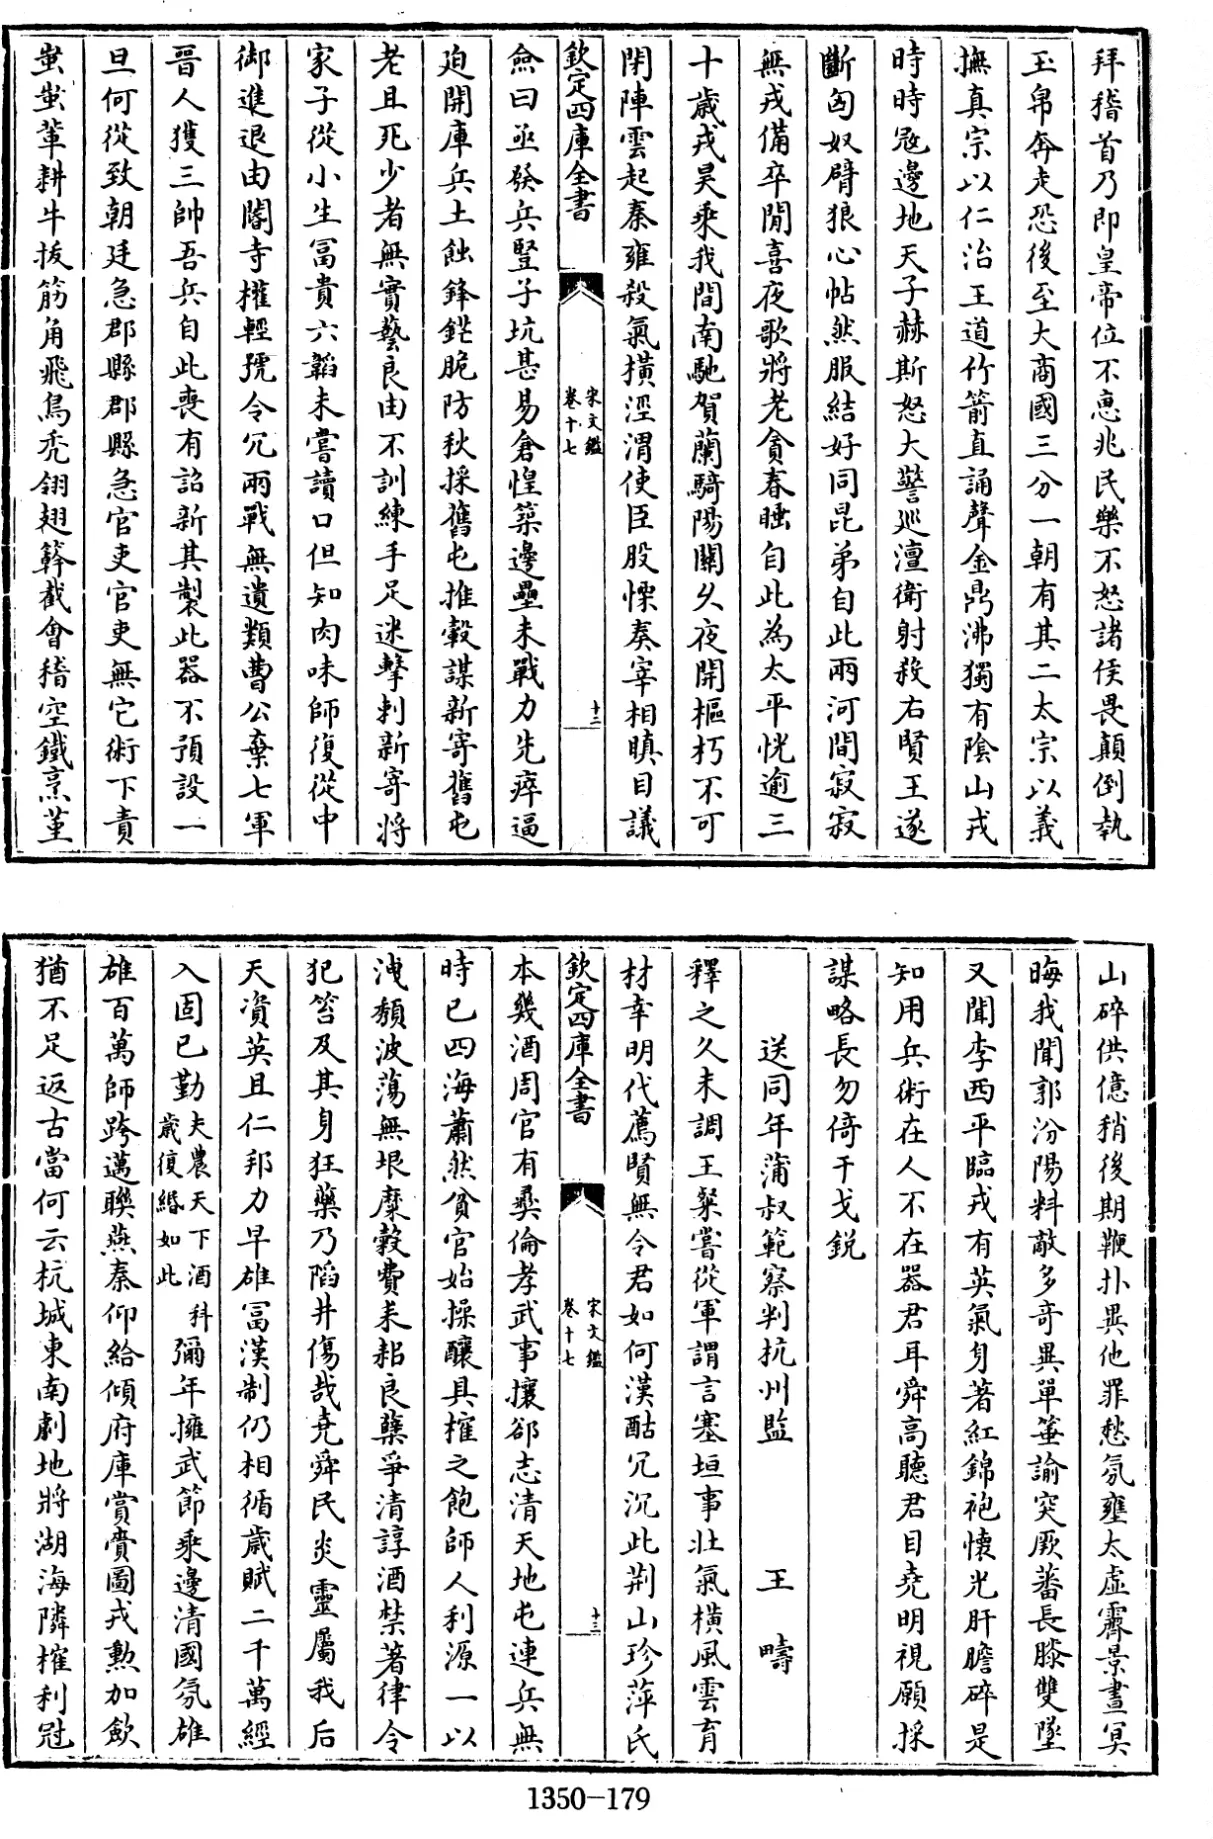 拜稽首乃即皇帝位不恩兆民樂不怒諸侯畏顛倒執
玉帛奔走恐後至大商國三分一朝有其二太宗以義
撫真宗以仁治王道竹箭直誦聲金鼎沸獨有陰山戎
時時冦邊地天子赫斯怒大警巡澶衛射殺右賢王遂
斷匈奴臂狼心帖然服結好同昆弟自此兩河間寂寂
無戎備卒閒喜夜歌將老貪春睡自此為太平恍逾三
十歲戎昊乘我間南馳賀蘭騎陽關久夜開樞朽不可
閉陣雲起秦雍殺氣横涇渭使臣股慄奏宰相瞋目議
欽定四庫全書 宋文鑑 卷十七 十二
僉曰亟發兵豎子坑甚易倉惶築邊壘未戰力先瘁逼
廹開庫兵土蝕鋒鋩脆防秋採舊屯推轂謀新寄舊屯
老且死少者無實藝良由不訓練手足迷擊刺新寄將
家子從小生冨貴六韜未嘗讀口但知肉味師復從中
御進退由閽寺權輕號令冗兩戰無遺類曹公棄七軍
晉人獲三帥吾兵自此喪有詔新其製此器不預設一
旦何從致朝廷急郡縣郡縣急官吏官吏無它術下責
蚩蚩輩耕牛拔筋角飛鳥秃翎翅簳截會稽空鐵烹堇
山碎供億稍後期鞭扑異他罪愁氛壅太虛霽景晝冥
晦我聞郭汾陽料敵多奇異單箠諭突厥蕃長膝雙墜
又聞李西平臨戎有英氣身著紅錦袍懷光肝膽碎是
知用兵術在人不在器君耳舜高聽君目堯明視願採
謀略長勿倚干戈銳
送同年蒲叔範察判抗州監 王疇
釋之久未調王粲嘗從軍謂言塞垣事壯氣横風雲育
材幸明代薦賢無令君如何漢酤冗沉此荆山珍萍氏
欽定四庫全書 宋文鑑 卷十七 十三
本幾酒周官有彞倫孝武事攘郤志清天地屯連兵無
時已四海蕭然貧官始操釀具榷之飽師人利源一以
洩頺波蕩無垠糜穀費耒耜良蘖爭清諄酒禁著律令
犯笞及其身狂藥乃䧟井傷哉堯舜民炎靈屬我后
天資英且仁邦力早雄冨漢制仍相循歳賦二千萬經
入固已勤夫農天下酒科歲復緡如此彌年擁武節乘邊清國氛雄
雄百萬師跨邁聯燕秦仰給傾府庫賞賫圖戎勲加斂
猶不足返古當何云杭城東南劇地將湖海隣榷利冠
1350—179